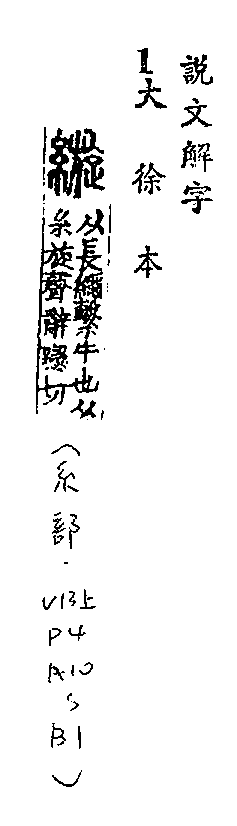 説文解字
1大徐本
縼
以長繩繫牛也从
糸旋聲辭戀切
(糸部.
V13上
P4
A10
S
B1)